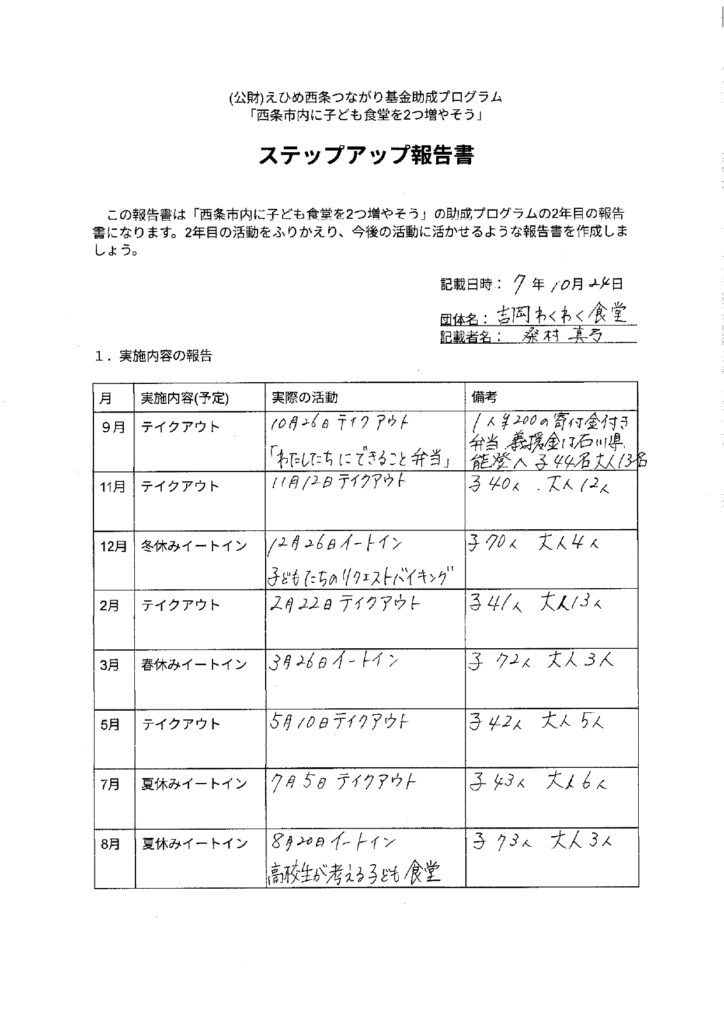 (公財)えひめ西条つながり基金助成プログラム
「西条市内に子ども食堂を2つ増やそう」
ステップアップ報告書
この報告書は「西条市内に子ども食堂を2つ増やそう」の助成プログラムの2年目の報告
書になります。2年目の活動をふりかえり、今後の活動に活かせるような報告書を作成しま
しょう。
記載日時： 7 年 10月 24日
団体名： 吉岡わくわく食堂
記載者名： 桑村 真弓
1．実施内容の報告
月 実施内容(予定) 実際の活動 備考
9月 テイクアウト 10月26日 テイクアウト 1人¥200の寄付金付き
弁当 義援金は石川県
「わたしたちにできること弁当」 能登へ 子44名大人13名
11月 テイクアウト 11月12日テイクアウト 子40人 . 大人12人
12月 冬休みイートイン 12月26日イートイン 子70人 大人4人
子どもたちのリクエストバイキング
2月 テイクアウト 2月22日テイクアウト 子41人 大人13人
3月 春休みイートイン 3月26日イートイン 子 72人 大人3人
5月 テイクアウト 5月10日テイクアウト 子42人 大人5人
7月 夏休みイートイン 7月5日 テイクアウト 子43人 大人6人
8月 夏休みイートイン 8月20日イートイン 子 73人 大人3人
高校生が考える子ども食堂